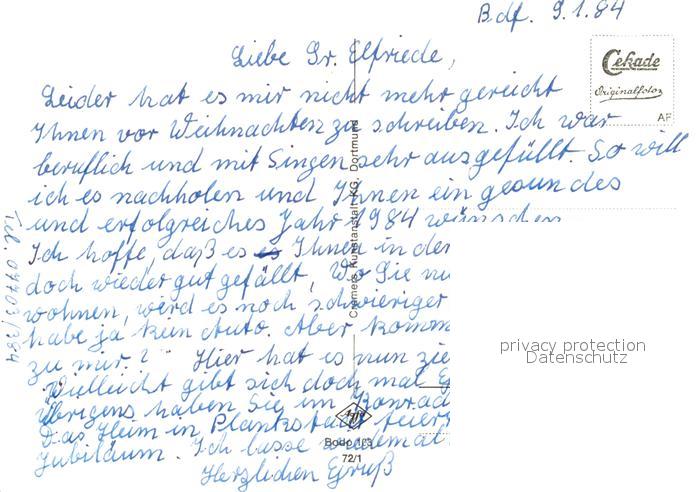 Bdf. 9.1.84
Liebe Sr. Elfriede,
Leider hat es mir nicht mehr gereicht
Ihnen vor Weihnachten zu schreiben. Ich war
beruflich und mit Singen sehr ausgefüllt. So will
ich es nachholen und Ihnen ein gesundes
und erfolgreiches Jahr 1984 wünschen
Ich hoffe, daß es Ihnen in der
doch wieder gut gefällt, Wo Sie
wohnen, wird es noch schwieriger
habe ja kein Auto. Aber
zu mir.? Hier hat es nun
Vielleicht gibt sich doch mal
Übrigens haben Sie im
Das Heim in Plankstadt
Jubiläum. Ich lasse
Herzlichen Gruß
Tel. 07703/384
Cekade
Originalfoto
AF
Cramers Kunstanstalt KG. Dortmund
Bodo 103
72/1
privacy protection
Datenschutz